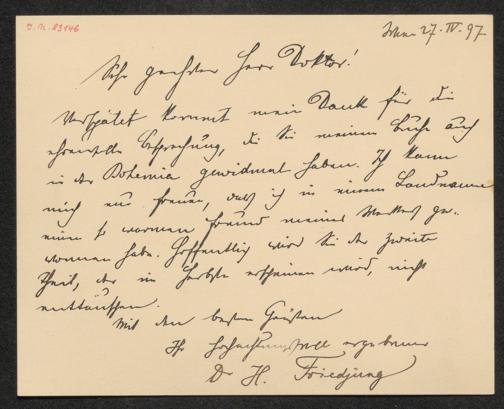 J.N. 83146
Wien 27. IV. 97
Sehr geehrter Herr Doktor!
Verspätet kommt mein Dank für die
ehrenvolle Besprechung, die Sie meinem Buche auch
in der Bohemia gewidmet haben. Ich kann
mich nur freuen, daß ich in einem Landsmanne
einen so warmen Freund meines Werkes ge-
wonnen habe. Hoffentlich wird Sie der zweite
Theil, der im Herbste erscheinen wird, nicht
enttäuschen.
Mit den besten Grüßen
Ihr hochachtungsvoll ergebener
Dr H. Friedjung